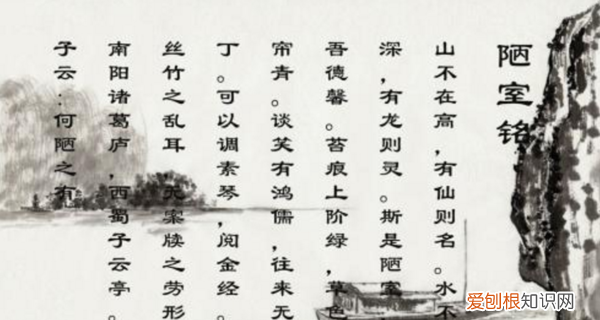 陋室铭
山不在高，有仙则名。水不
深，有龙则灵。斯是陋室
吾德馨。苔痕上阶绿，草色
帘青。谈笑有鸿儒，往来无
丁。可以调素琴，阅金经。
丝竹之乱耳，无案牍之劳形
南阳诸葛庐，西蜀子云亭。
子云：何陋之有
爱刨根知识网